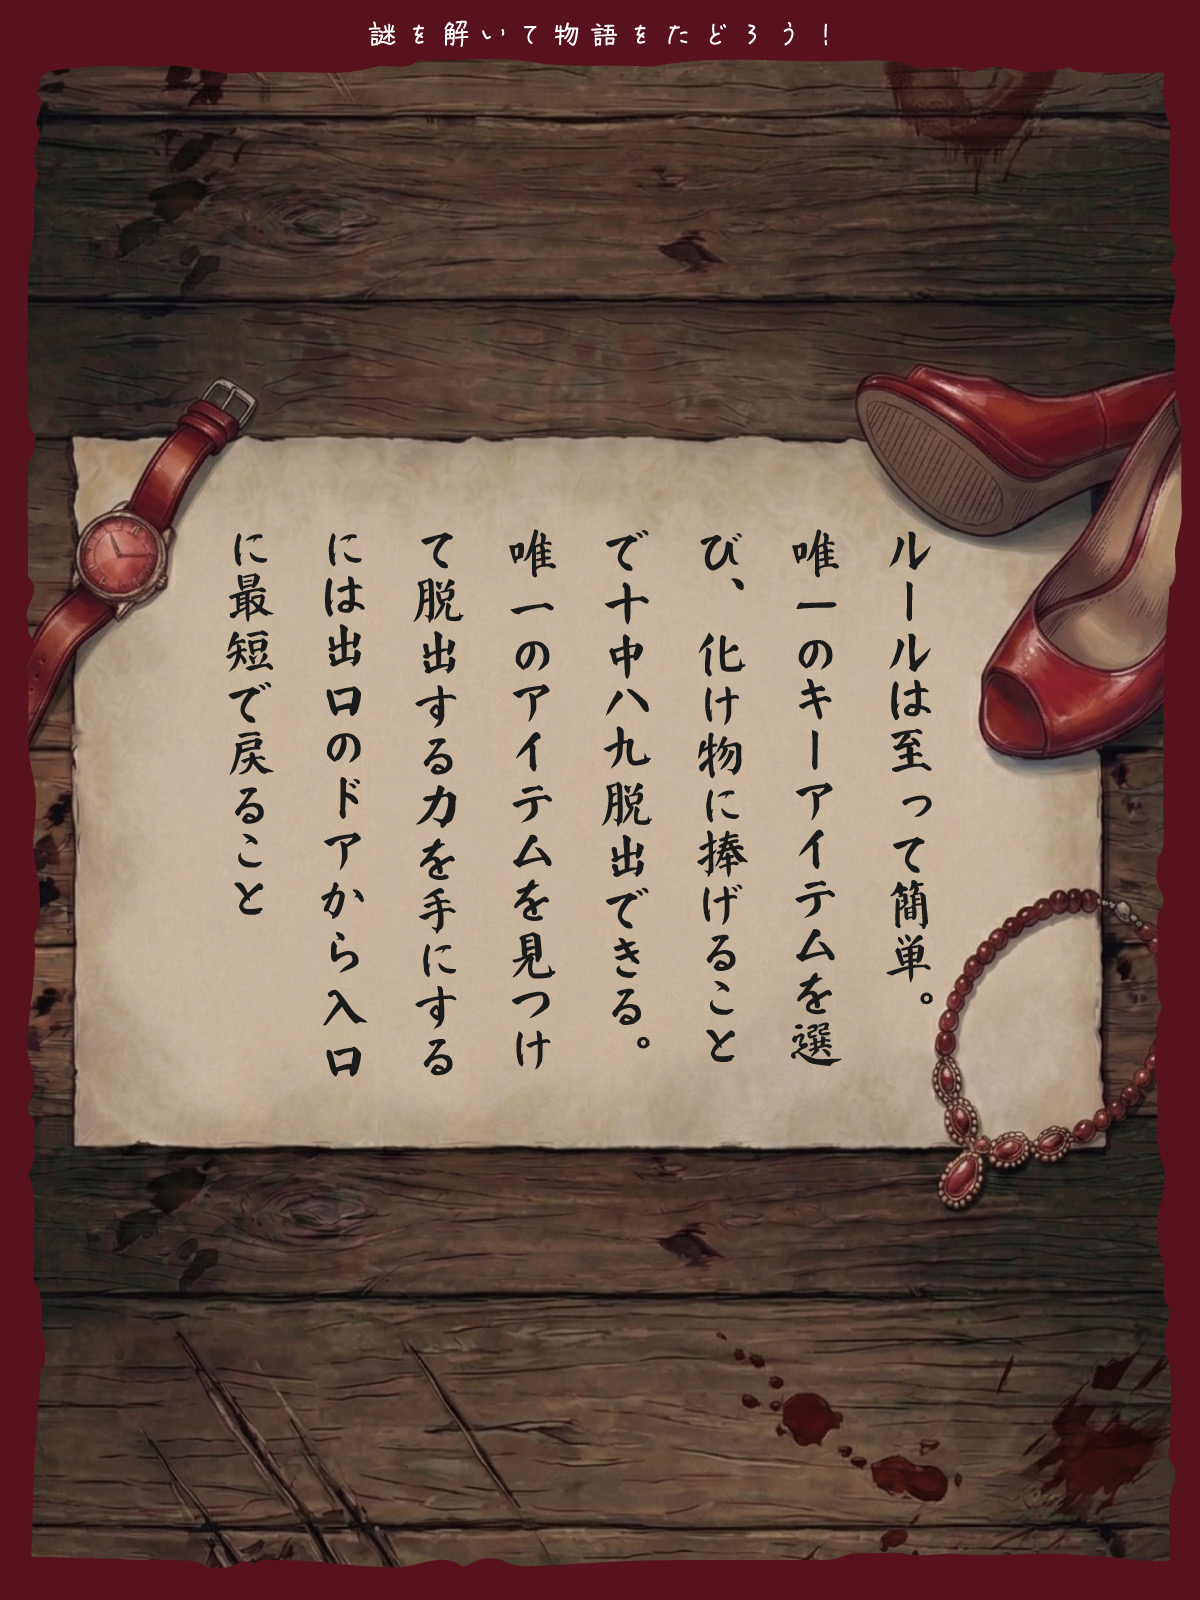 謎を解いて物語をたどろう！
ルールは至って簡単。
唯一のキーアイテムを選
び、化け物に捧げること
で十中八九脱出できる。
唯一のアイテムを見つけ
て脱出する力を手にする
には出口のドアから入口
に最短で戻ること